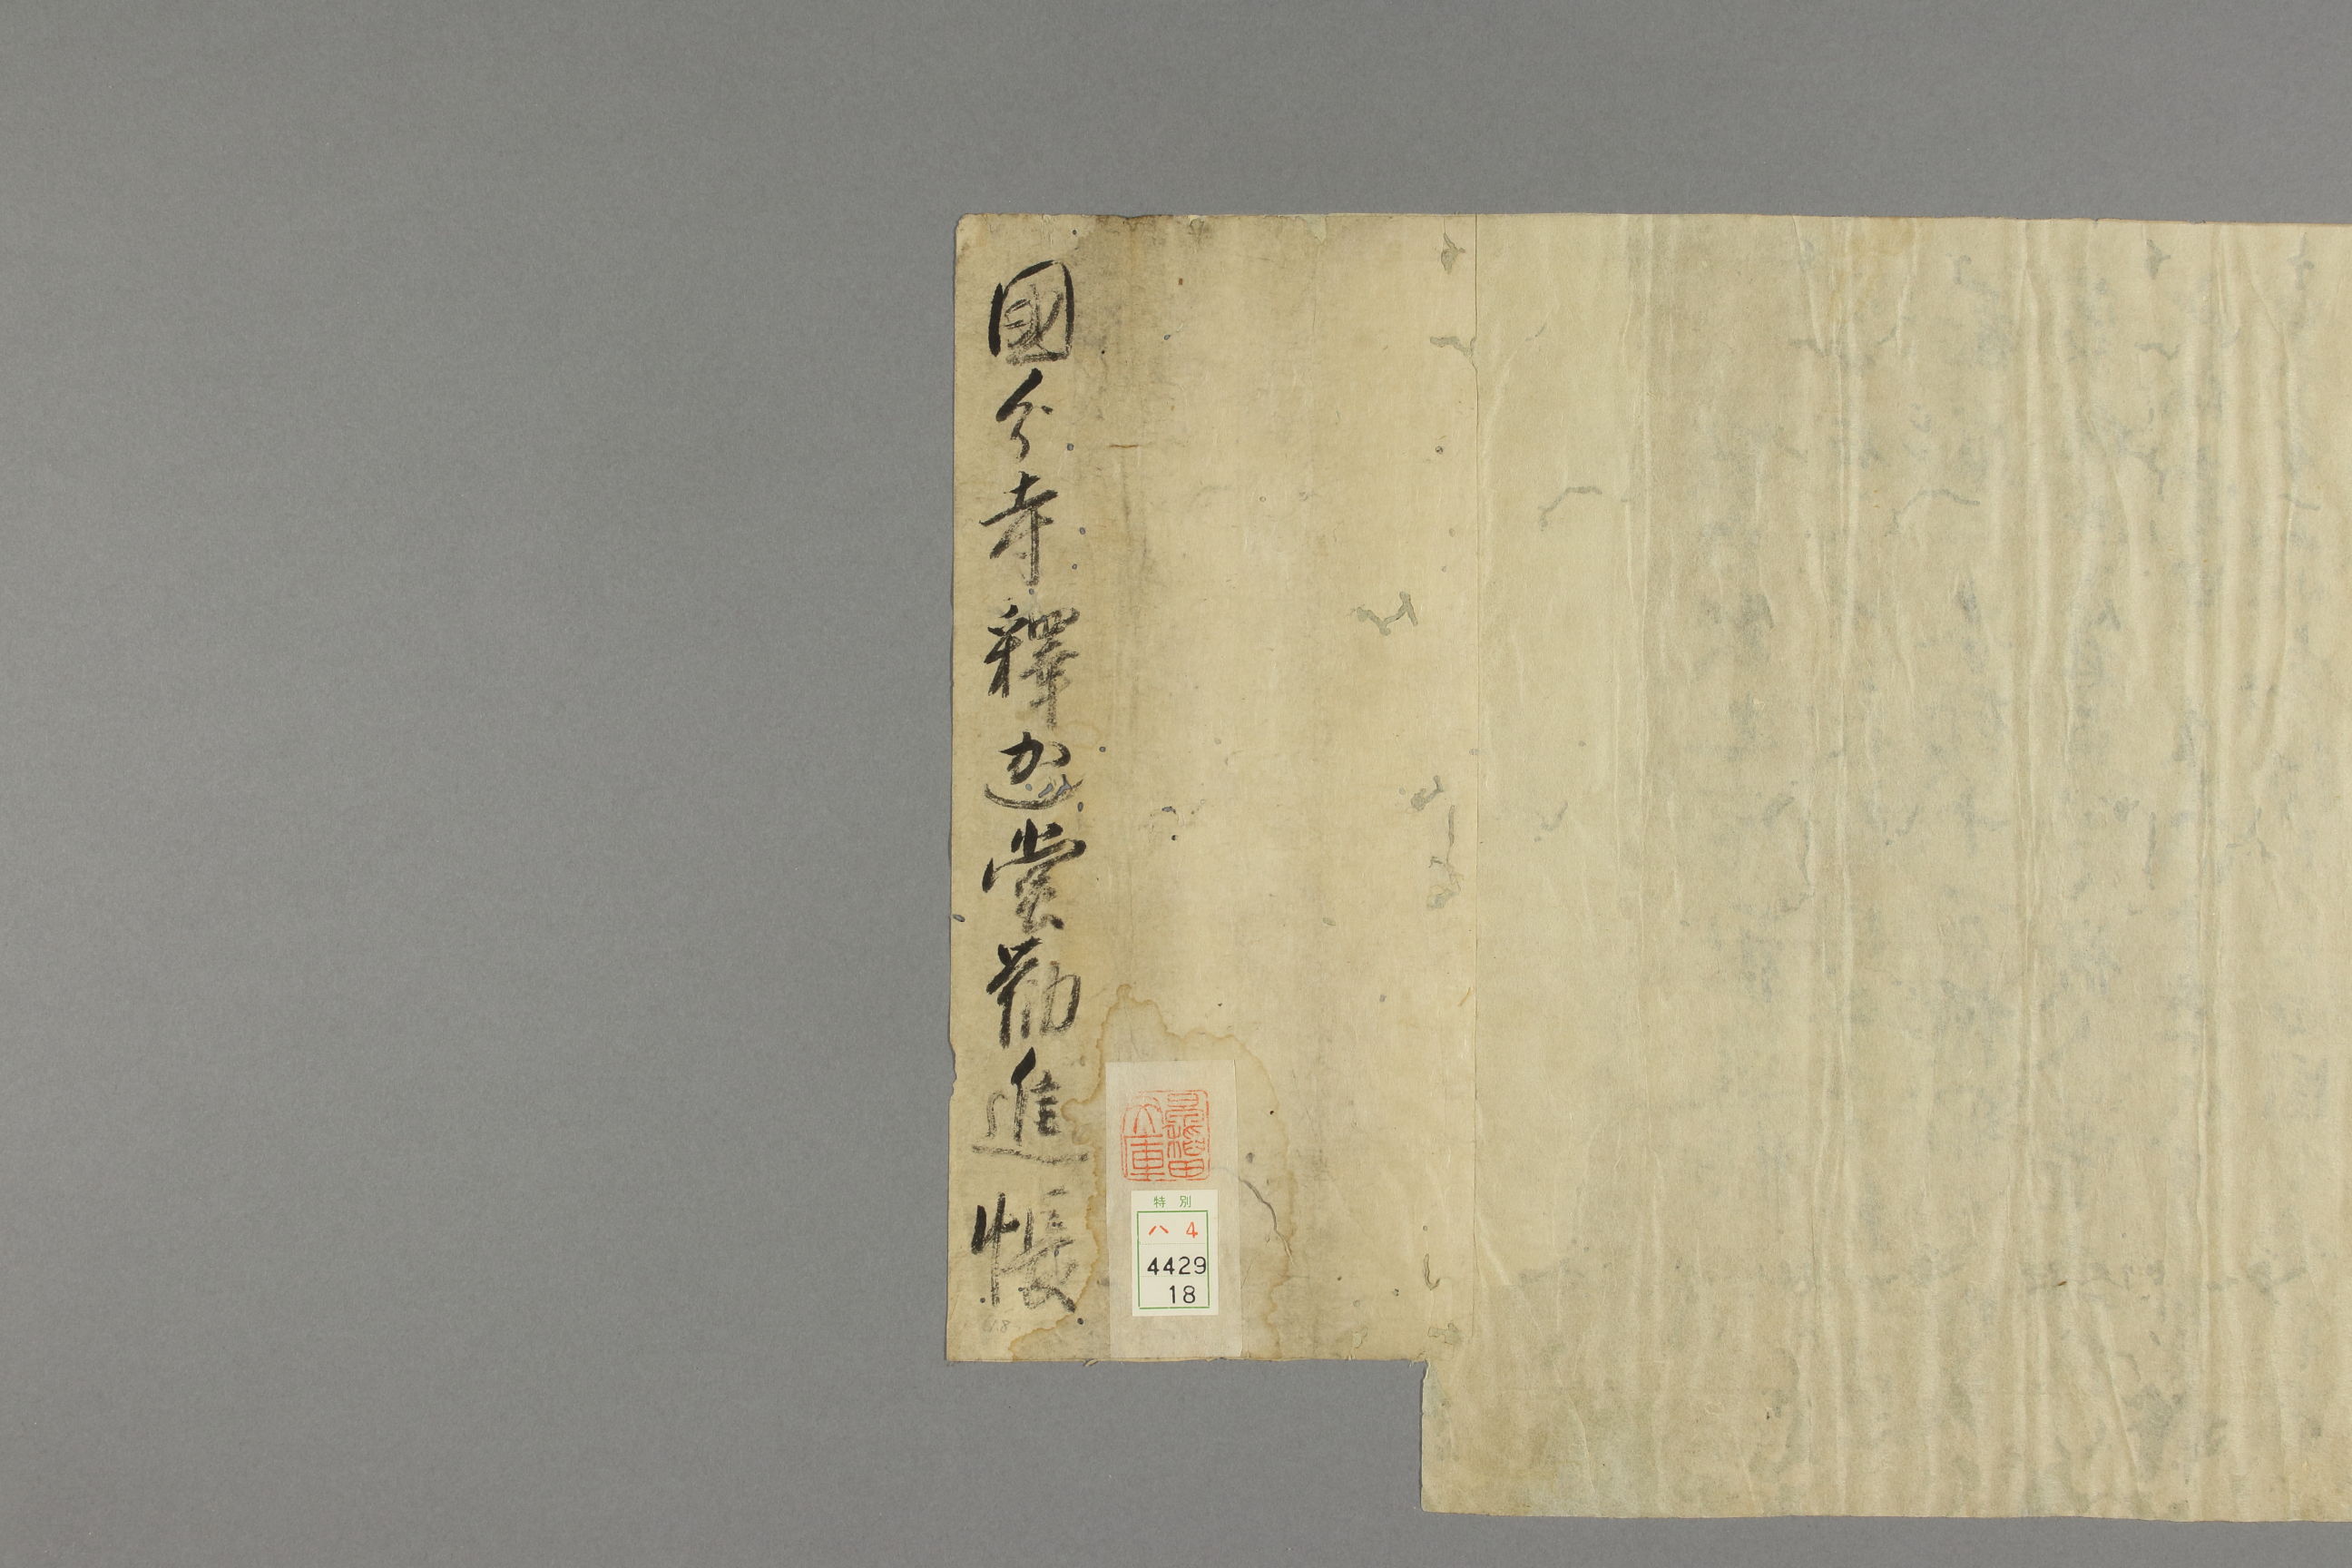 國分寺釋迦堂勧進帳
特別
ハ4
4429
18